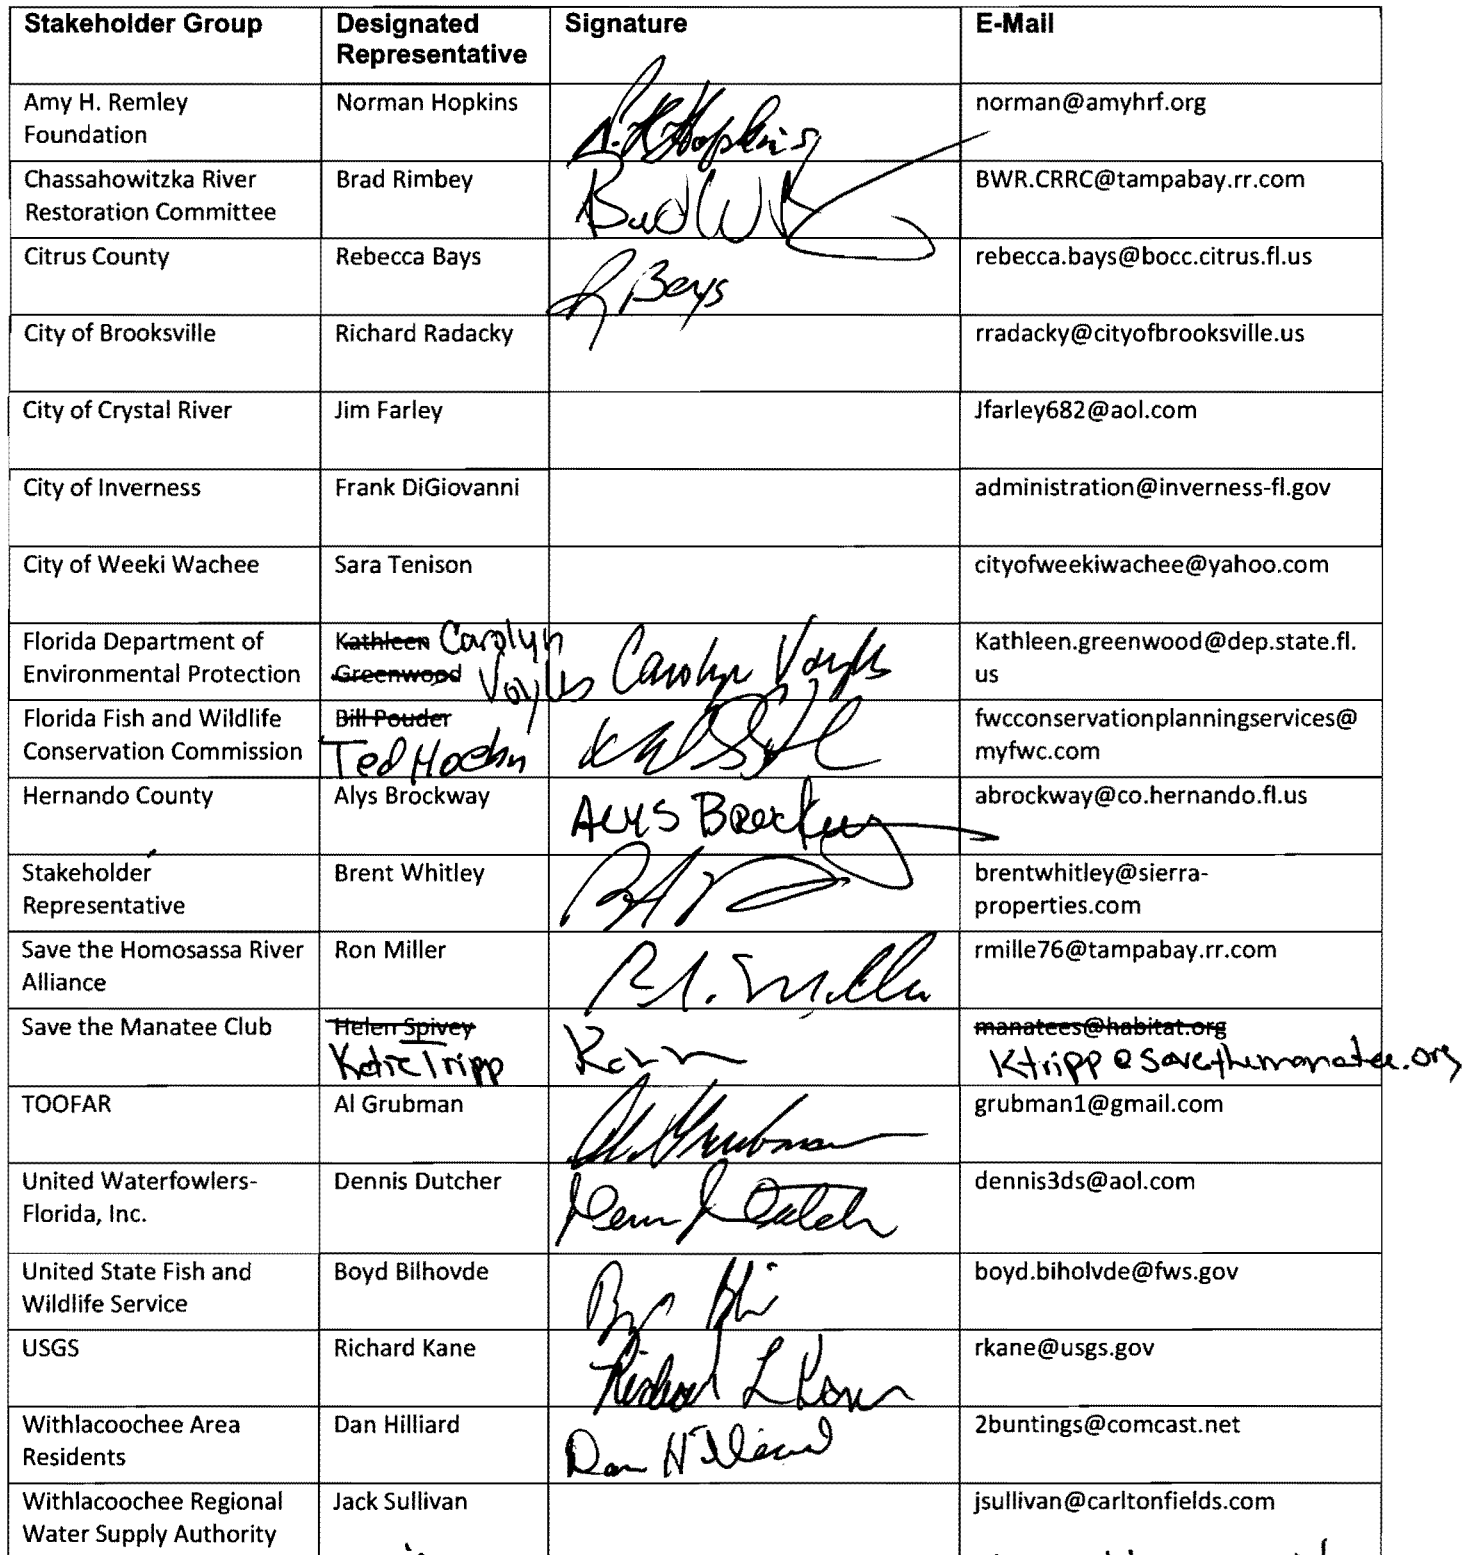 Stakeholder Group Designated Representative Signature E-Mail
Amy H. Remley Foundation Norman Hopkins N. Hopkins norman@amyhrf.org
Chassahowitzka River Restoration Committee Brad Rimbey Brad W BWR.CRRC@tampabay.rr.com
Citrus County Rebecca Bays R Bays rebecca.bays@bocc.citrus.fl.us
City of Brooksville Richard Radacky rradacky@cityofbrooksville.us
City of Crystal River Jim Farley Jfarley682@aol.com
City of Inverness Frank DiGiovanni administration@inverness-fl.gov
City of Weeki Wachee Sara Tenison cityofweekiwachee@yahoo.com
Florida Department of Environmental Protection Kathleen Greenwood Carolyn Voyles Carolyn Voyles Kathleen.greenwood@dep.state.fl.us
Florida Fish and Wildlife Conservation Commission Bill Pouder Ted Hoehn fwcconservationplanningservices@myfwc.com
Hernando County Alys Brockway Alys Brockway abrockway@co.hernando.fl.us
Stakeholder Representative Brent Whitley brentwhitley@sierra-properties.com
Save the Homosassa River Alliance Ron Miller Miller rmille76@tampabay.rr.com
Save the Manatee Club Helen Spivey Katie Tripp manatees@habitat.org Ktripp@savethemanatee.org
TOOFAR Al Grubman Al Grubman grubman1@gmail.com
United Waterfowlers-Florida, Inc. Dennis Dutcher Dutcher dennis3ds@aol.com
United State Fish and Wildlife Service Boyd Bilhovde boyd.biholvde@fws.gov
USGS Richard Kane Richard L Kane rkane@usgs.gov
Withlacoochee Area Residents Dan Hilliard Dan Hilliard 2buntings@comcast.net
Withlacoochee Regional Water Supply Authority Jack Sullivan jsullivan@carltonfields.com